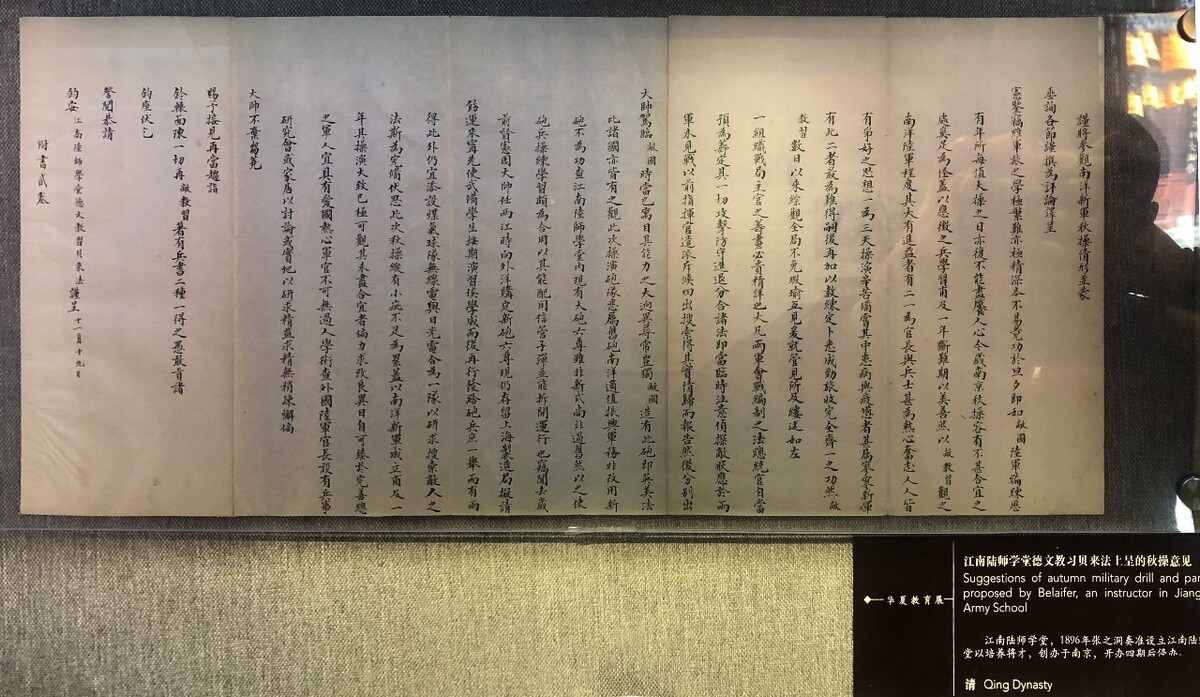 謹將參觀南洋新軍秋操情形並蒙
垂詢各節謹撰為評論譯呈
憲鑒竊維軍旅之學極繁難亦極精深本不易竟功於旦夕即如 敝國 陸軍編練思
有年所每值大操之日亦復不能盡饜人心今歲南京秋操容有不甚合宜之
處奚足為怪蓋以應徵之兵學習甫及一年斷難期以美善然以 敝教習觀之
南洋陸軍程度其大有進益者有二一為官長與兵士甚為熱心奮志人人皆
有爭好之思想一為三天操演辛苦備嘗其中患病與疲憊者甚屬寥寥新軍
有此二者最為難得嗣後再加以教練定卜悉成勁旅收完全齊一之功然 敝
教習 數日以來綜觀全局不免瑕瑜互見爰就管見所及縷述如左
一組織戰局主官之籌畫必貴精詳也大凡兩軍會戰編制之法總統官自當
預為籌定其一切攻擊防守進退分合諸法即當臨時注意偵探敵狀應於兩
軍未見戰以前指揮官遣派斥候四出搜索得其實情歸而報告然後分別出
大帥駕臨 敝國 時當已寓目其能力之大迥異尋常豈獨 敝國 造有此砲即英美法
比諸國亦皆有之觀此次操演砲隊悉屬舊砲南洋適值振興軍務非改用新
砲不為功查江南陸師學堂內現有大砲六尊雖非新式尚非過舊然以之使
砲兵操練學習頗為合用以其能配用信管子彈並能折開運行也竊聞去歲
前督憲周大帥任兩江時向外洋購定新砲六尊現仍存留上海製造局擬請
飭運來甯先使武備學生按期演習俟學成而後再行發給砲兵庶一舉而有兩
得此外仍宜添設煤氣球隊無線電與日光電合為一隊以研求搜索敵人之
法斯為完備伏思此次秋操縱有小疵不足為累蓋以南洋新軍成立甫及一
年其操演大致已極可觀其未盡合宜者偏力求改良異日自可臻於完善總
之軍人宜具有愛國熱心軍官不可無過人學術查外國陸軍官長設有兵事
研究會或家居以討論或實地以研求精益求精無稍疎懈倘
大帥不棄蒭蕘
賜予接見再當趨謁
鈴轅面陳一切再 敝教習 著有兵書二種一得之愚敢肯諸
鈞座伏乞
詧閱恭請
鈞安 江南陸師學堂德文教習貝來法謹呈 十一月十九日
附書貳卷
華夏教育展
江南陆师学堂德文教习贝来法上呈的秋操意见
Suggestions of autumn military drill and
proposed by Belaifer, an instructor in
Army School
江南陆师学堂，1896年张之洞奏准设立江南陆
堂以培养将才，创办于南京，开办四期后停办。
清 Qing Dynasty